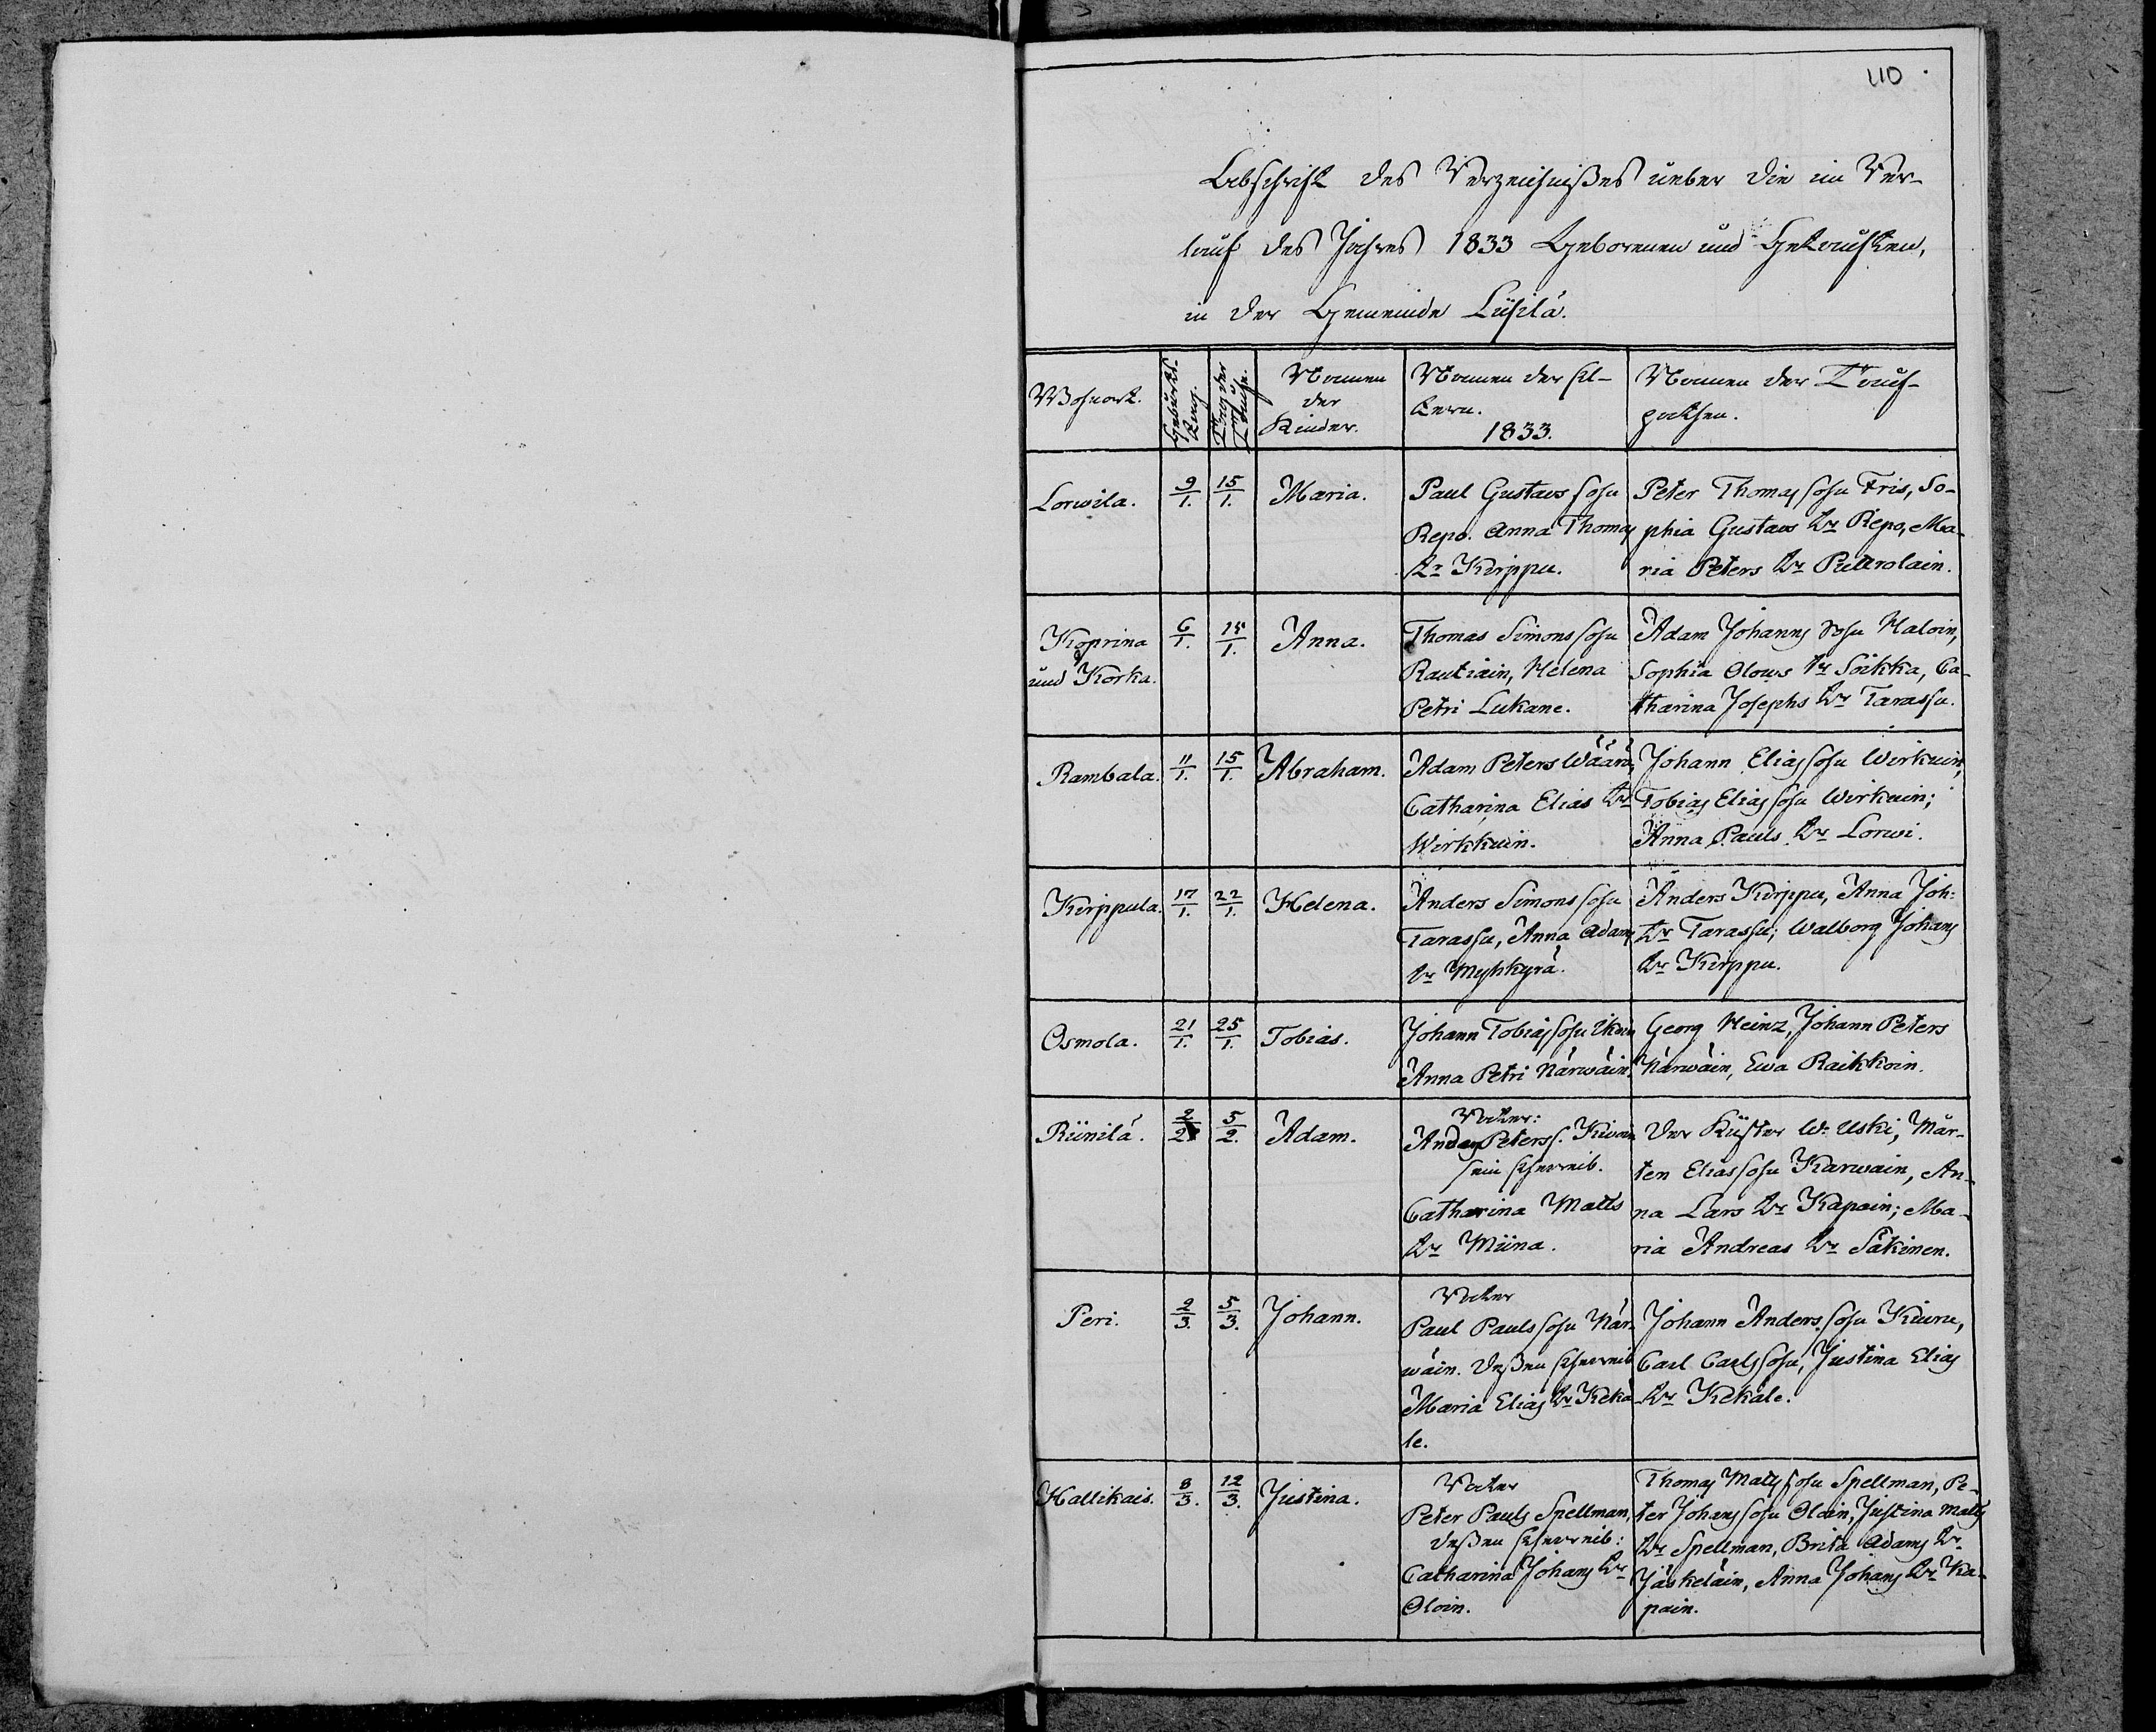 110.
Abschrift des Verzeichnißes ueber die im Ver-
lauf des Jahres 1833 Gebornen und Getauften,
in der Gemeinde Lüsilä.
Wohnort.
Geburts
Tag.
Tag der
Taufe.
Namen
der
Kinder.
Namen der El-
tern.
1833.
Namen der Tauf-
pathen.
Lorwila.
9/1.
15/1.
Maria.
Paul Gustavs sohn
Repo. Anna Thomas
Tr Kirppu.
Peter Thomas sohn Fris, So-
phia Gustavs Tr Repo, Ma-
ria Peters Tr Putrolain.
Koprina
und Korka.
6/1.
15/1.
Anna.
Thomas Simons sohn
Rautiain, Helena
Petri Lukane.
Adam Johanns sohn Haloin,
Sophia Olows Tr Soikka, Ca-
tharina Josephs Tr Tarassu.
Rambala.
11/1.
15/1.
Abraham.
Adam Peters Wäärä,
Catharina Elias Tr
Wirkkuin.
Johann Elias sohn Wirkuin,
Tobias Elias sohn Wirkuin;
Anna Pauls Tr Lorwi.
Kirppula.
17/1.
22/1.
Helena.
Anders Simons sohn
Tarassu, Anna Adams
Tr Myhkyrä.
Anders Kirppu, Anna Joh:
Tr Tarassu; Walborg Johans
Tr Kirppu.
Osmola.
21/1.
25/1.
Tobias.
Johann Tobias sohn
Anna Petri Närwäin.
Georg Heinz, Johann Peters
Närwäin, Ewa Raikkoin.
Riinilä.
2/2
5/2.
Adam.
Vater:
Peters s.
sein Eheweib.
Catharina Matts
Tr Miina.
Der Küster W. Uski, Mär-
ten Elias sohn Karwain, An-
na Lars Tr Kapain; Ma-
ria Andreas Tr Säkinen.
Peri.
2/3.
5/3.
Johann.
Vater
Paul Pauls sohn När-
wäin. Deßen Eheweib
Maria Elias Tr Kekä
le.
Johann Anders sohn Kiuru,
Carl Carls sohn, Justina Elias
Tr Kekäle.
Hallikais.
8/3.
12/3.
Justina.
Vater
Peter Pauls Spellman,
deßen Eheweib:
Catharina Johans Tr
Oloin.
Thomas Matts sohn Spellman, Pe-
ter Johans sohn Oloin, Justina Matts
Tr Spellman, Brita Adams Tr
Jäskeläin, Anna Johans Tr Ka-
pain.